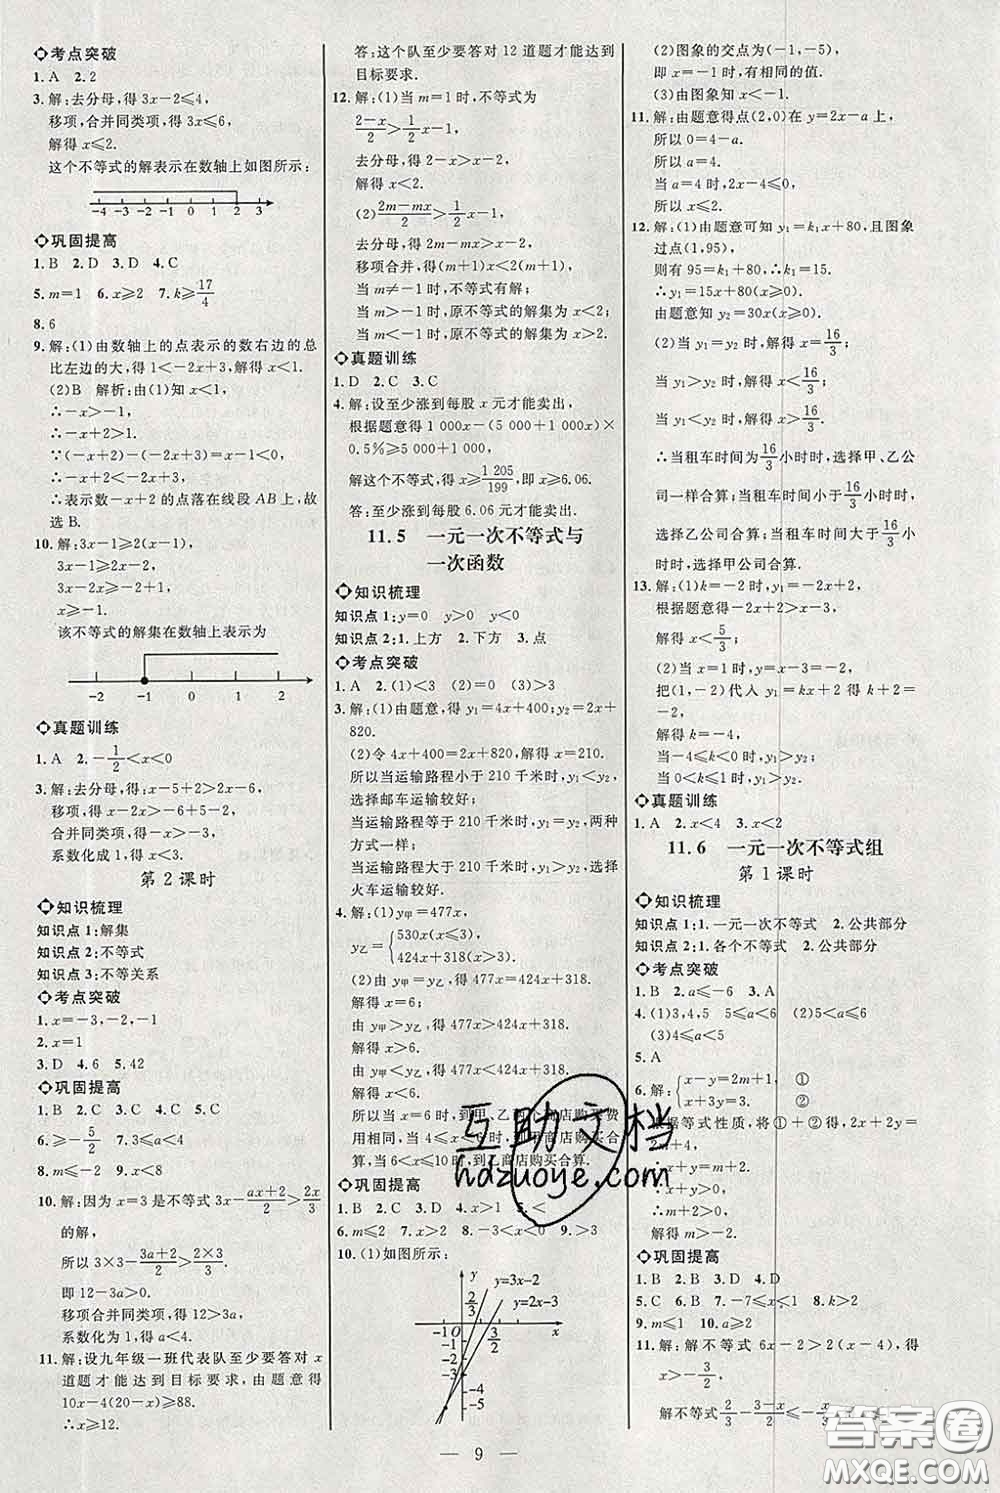 考点突破
1. A 2. 2
3. 解:去分母,得 3x-2≤4,
移项,合并同类项,得 3x≤6,
解得 x≤2.
这个不等式的解表示在数轴上如图所示:
-4 -3 -2 -1 0 1 2 3
巩固提高
1. B 2. D 3. D 4. C
5. m=1 6. x≥2 7. k≥17/4
8. 6
9. 解:(1)由数轴上的点表示的数右边的总
比左边的大,得 1<-2x+3,解得 x<1.
(2)B 解析:由(1)知 x<1,
∴-x>-1,
∴-x+2>1.
∵(-x+2)-(-2x+3)=x-1<0,
∴-x+2<-2x+3,
∴表示数-x+2 的点落在线段 AB 上,故
选 B.
10. 解:3x-1≥2(x-1),
3x-1≥2x-2,
3x-2x≥-2+1,
x≥-1.
该不等式的解集在数轴上表示为
-2 -1 0 1 2
真题训练
1. A 2. -1/2<x<0
3. 解:去分母,得:x-5+2>2x-6,
移项,得 x-2x>-6+5-2,
合并同类项,得-x>-3,
系数化成 1,得 x<3.
第 2 课时
知识梳理
知识点 1:解集
知识点 2:不等式
知识点 3:不等关系
考点突破
1. x=-3,-2,-1
2. x=1
3. D 4. 6 5. 42
巩固提高
1. B 2. D 3. D 4. C 5. B
6. ≥-5/2 7. 3≤a<4
8. m≤-2 9. x<8
10. 解:因为 x=3 是不等式 3x-(ax+2)/2>2x/3
的解,
所以 3×3-(3a+2)/2>(2×3)/3.
即 12-3a>0.
移项合并同类项,得 12>3a,
系数化为 1,得 a<4.
11. 解:设九年级一班代表队至少要答对 x
道题才能达到目标要求,由题意得
10x-4(20-x)≥88.
∴x≥12.
答:这个队至少要答对 12 道题才能达到
目标要求.
12. 解:(1)当 m=1 时,不等式为
(2-x)/2>1/2x-1,
去分母,得 2-x>x-2,
解得 x<2.
(2)(2m-mx)/2>1/2x-1,
去分母,得 2m-mx>x-2,
移项合并,得(m+1)x<2(m+1),
当 m≠-1 时,不等式有解;
当 m>-1 时,原不等式的解集为 x<2;
当 m<-1 时,原不等式的解集为 x>2.
真题训练
1. D 2. C 3. C
4. 解:设至少涨到每股 x 元才能卖出,
根据题意得 1 000x-(5 000+1 000x)×
0.5%≥5 000+1 000,
解这个不等式,得 x≥1 205/199,即 x≥6.06.
答:至少涨到每股 6.06 元才能卖出.
11.5 一元一次不等式与
一次函数
知识梳理
知识点 1:y=0 y>0 y<0
知识点 2:1. 上方 2. 下方 3. 点
考点突破
1. A 2. (1)<3 (2)=3 (3)>3
3. 解:(1)由题意,得 y₁=4x+400;y₂=2x+
820.
(2)令 4x+400=2x+820,解得 x=210.
所以当运输路程小于 210 千米时,y₁<y₂,
选择邮车运输较好;
当运输路程等于 210 千米时,y₁=y₂,两种
方式一样;
当运输路程大于 210 千米时,y₁>y₂,选择
火车运输较好.
4. 解:(1)y甲=477x,
y乙={530x(x≤3),
424x+318(x>3).
(2)由 y甲=y乙,得 477x=424x+318,
解得 x=6;
由 y甲>y乙,得 477x>424x+318.
解得 x>6.
由 y甲<y乙,得 477x<424x+318.
解得 x<6.
所以当 x=6 时,到甲、乙两个商店购买费
用相同,当 4≤x<6 时,到甲商店购买合
算,当 6<x≤10 时,到乙商店购买合算.
巩固提高
1. B 2. B 3. C 4. D 5. <
6. m≤2 7. x>2 8. -9<x<-3 9. >3
10. (1)如图所示:
y y=3x-2
2/3 y=2x-3
-1 O 3/2 x
-2
-3
-4
-5
(2)图象的交点为(-1,-5),
即 x=-1 时,有相同的值.
(3)由图象知 x<-1.
11. 解:由题意得点(2,0)在 y=2x-a 上,
所以 0=4-a.
所以 a=4.
当 a=4 时,2x-4≤0,
所以 x≤2.
12. 解:(1)由题意可知 y₁=k₁x+80,且图象
过点(1,95),
则有 95=k₁+80,∴k₁=15.
∴y₁=15x+80(x≥0).
由题意知 y₂=30x(x≥0).
(2)当 y₁=y₂ 时,解得 x=16/3;
当 y₁>y₂ 时,解得 x<16/3;
当 y₁<y₂ 时,解得 x>16/3.
∴当租车时间为16/3小时时,选择甲、乙公
司一样合算;当租车时间小于16/3小时时,
选择乙公司合算;当租车时间大于16/3小
时时,选择甲公司合算.
13. 解:(1)k=-2 时,y₁=-2x+2,
根据题意得-2x+2>x-3,
解得 x<5/3;
(2)当 x=1 时,y₂=x-3=-2,
把(1,-2)代入 y₁=kx+2 得 k+2=
-2,解得 k=-4,
当-4≤k<0 时,y₁>y₂;
当 0<k≤1 时,y₁>y₂.
真题训练
1. A 2. x<4 3. x<2
11.6 一元一次不等式组
第 1 课时
知识梳理
知识点 1:1. 一元一次不等式 2. 公共部分
知识点 2:1. 各个不等式 2. 公共部分
考点突破
1. B 2. a≤-6 3. A
4. (1)3,4,5 5≤a<6 (2)5<a≤6
(3)4≤a<5
5. A
6. 解:{x-y=2m+1, ①
x+3y=3. ②
根据等式性质,将①+②得,2x+2y=
2m+4.
∴x+y=m+2.
∵x+y>0,
∴m+2>0.
解得 m>-2.
巩固提高
1. B 2. B 3. D 4. D
5. C 6. C 7. -1≤x<1 8. k>2
9. m≤1 10. a≥2
11. 解:解不等式 6x-2>2(x-4),得
x>-3/2,
互助文档
hdzuoye.com
答案圈
MXQE.COM
9